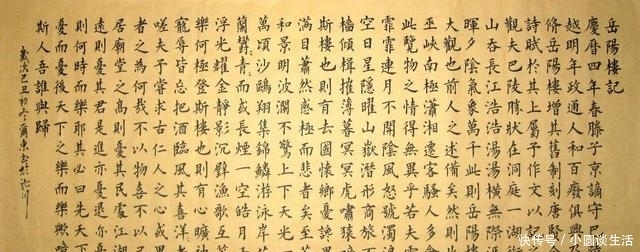 岳陽樓記
慶曆四年春滕子京謫守巴
越明年政通人和百廢俱興
脩岳陽樓增其舊制刻唐賢
詩賦於其上屬予作文以記
觀夫巴陵勝狀在洞庭一湖
山吞長江浩浩湯湯橫無際
暉夕陰氣象萬千此則岳陽
大觀也前人之述備矣然則
巫峽南極瀟湘遷客騷人多
此覽物之情得無異乎若夫
霏霏連月不開陰風怒號濁
空日星隱曜山嶽潛形商旅
檣傾楫摧薄暮冥冥虎嘯猿
斯樓也則有去國懷鄉憂讒
滿目蕭然感極而悲者矣至
和景明波瀾不驚上下天光
萬頃沙鷗翔集錦鱗游泳岸芷
蘭鬱青而或長煙一空皓月
浮光耀金靜影沉璧漁歌互
樂何極登斯樓也則有
寵辱皆忘把酒臨風其喜洋
嗟夫予嘗求古仁人之心或
者之為何哉不以物喜不以
居廟堂之高則憂其民處江湖
遠則憂其君是進亦憂退亦
則何時而樂耶其必曰先天下
憂而憂後天下之樂而樂歟噫
斯人吾誰與歸
歲次己丑初冬爾東書於
快传号 / 小圆谈生活